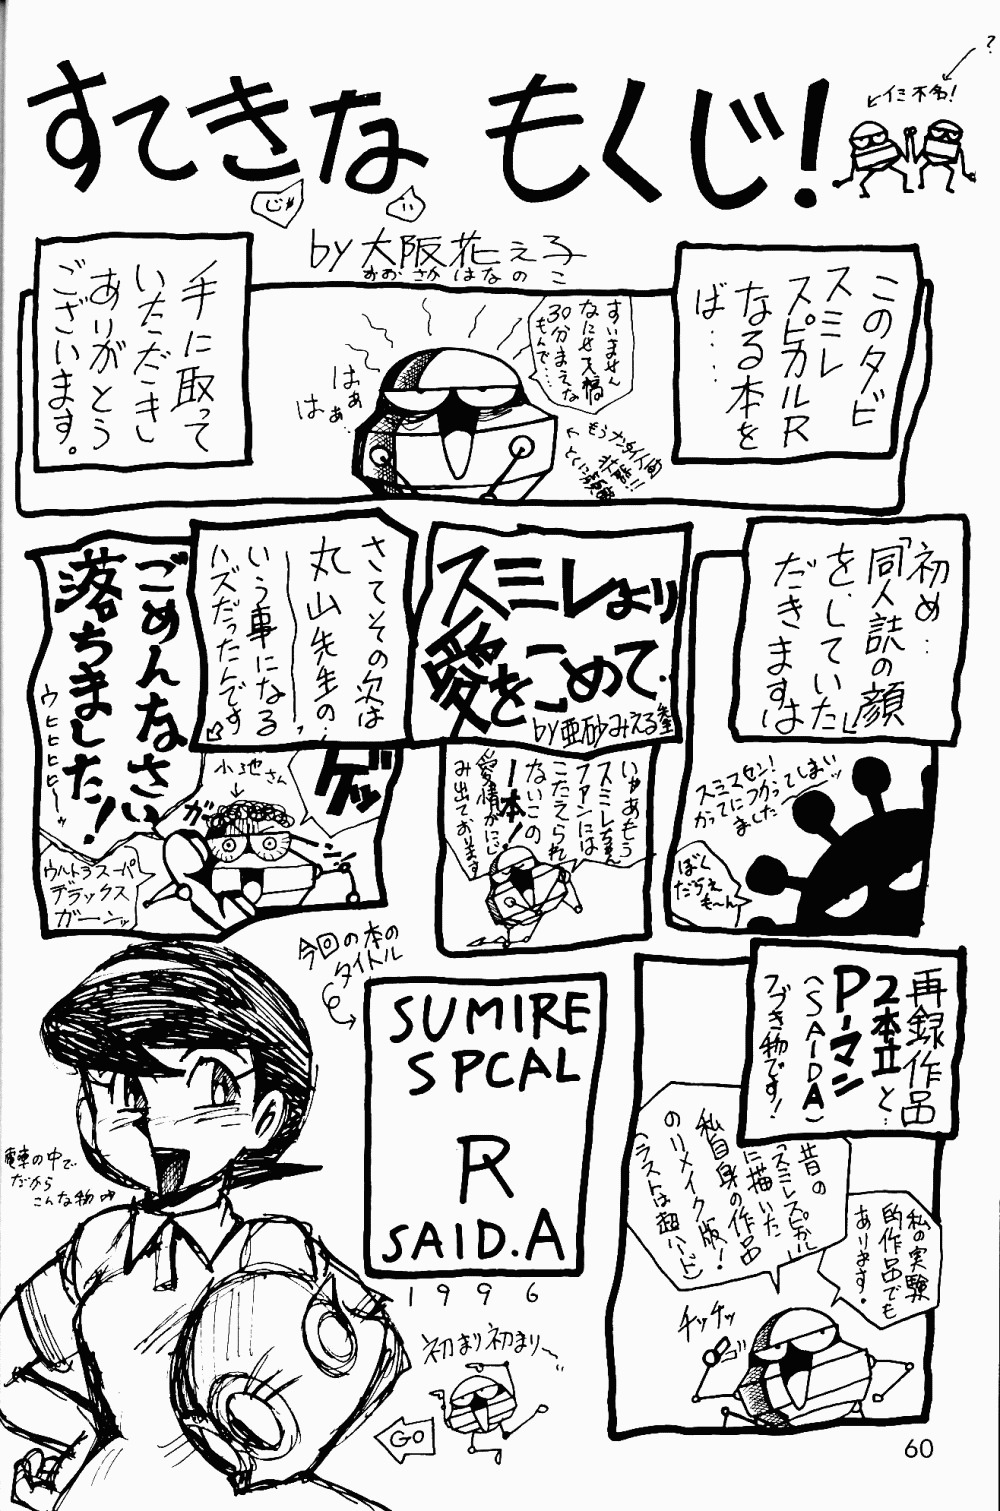 すてきな もくじ！
じゃ
い
?
イミ不名！
by 大阪花え子
おおさかはなのこ
このタビ
スミレ
スピカルR
なる本を
ば…
手に取って
いただきし
ありがとう
ございます。
すいません
なにせ入稿
30分まえな
もんで…
はぁぁ
は
もうナンタイ人的
状態!!
とくに
初め…
「同人誌の顔」
を、していた
だきますは
スミマスセン！
かってにつかってしまいッ
ました
ぼく
だちえ
も〜ん
スミレより
愛をこめて
by亜砂みえる
いやあもう
スミレちゃん
ファンには
こたえられ
ないこの
一本！
愛情がにじ
み出ております
さてその次は
丸山先生の…
いう事になる
ハズだったんです
ゲッ
ごめんなさい
落ちました！
ウヒヒヒヒヒ〜ッ
小池さん
ガ
ン
ウルトラスーパー
デラックス
ガーンッ
再録作品
2本立と…
P-マン
(SAIDA)
フづき物です！
昔の
「スミレスピカル」
に描いた
私自身の作品
のリメイク版！
(ラストは超ハード)
私の実験
的作品でも
あります。
チッチッ
今回の本の
タイトル
SUMIRE
SPCAL
R
SAID.A
1996
電車の中で
だから
こんな物
初まり初まり〜
GO
60